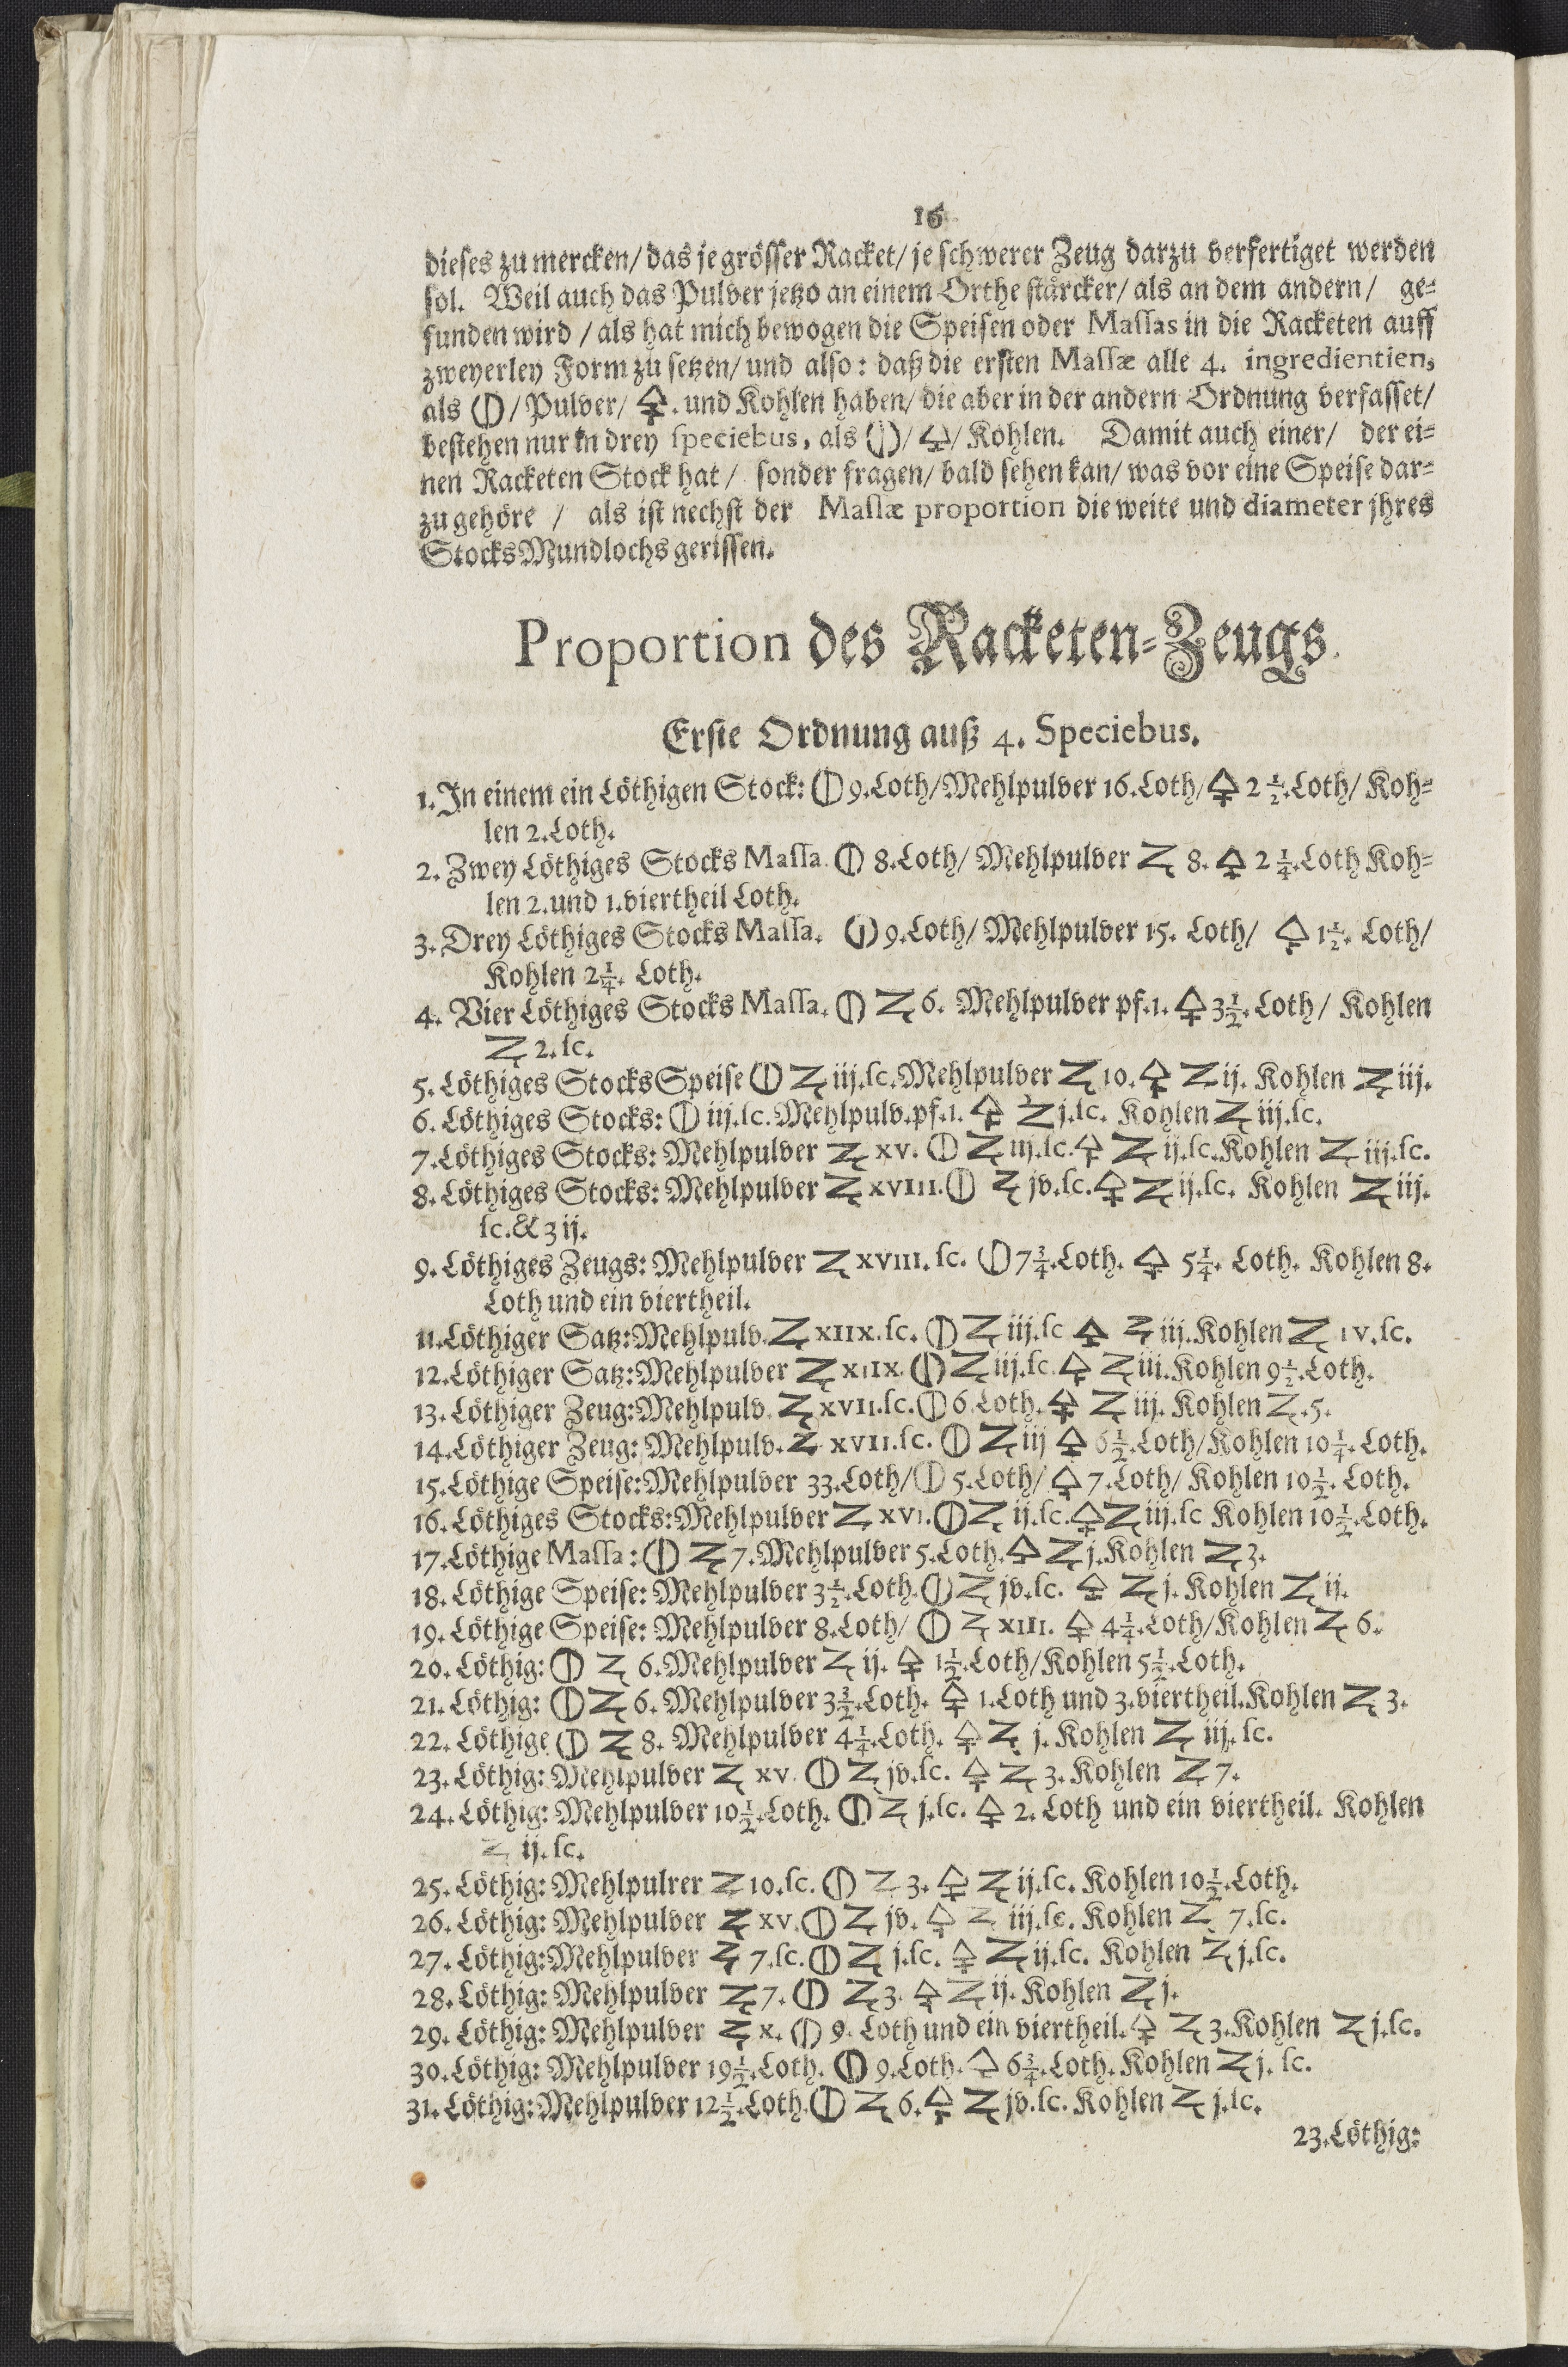 16
dieses zu mercken/ das je grösser Racket/ je schwerer Zeug darzu verfertiget werden
sol. Weil auch das Pulver jetzo an einem Orthe stärcker/ als an dem andern/ ge-
funden wird / als hat mich bewogen die Speisen oder Massas in die Racketen auff
zweyerley Form zu setzen/ und also: daß die ersten Massæ alle 4. ingredientien,
als 🜕/ Pulver/ 🜍. und Kohlen haben/ die aber in der andern Ordnung verfasset/
bestehen nur in drey speciebus, als 🜕/ 🜍/ Kohlen. Damit auch einer/ der ei-
nen Racketen Stock hat / sonder fragen/ bald sehen kan/ was vor eine Speise dar-
zu gehöre / als ist nechst der Massæ proportion die weite und diameter jhres
Stocks Mundlochs gerissen.
Proportion des Racketen-Zeugs.
Erste Ordnung auß 4. Speciebus.
1. In einem ein Löthigen Stock: 🜕 9. Loth/ Mehlpulver 16. Loth/ 🜍 2 1/2. Loth/ Koh-
len 2. Loth.
2. Zwey Löthiges Stocks Massa. 🜕 8. Loth/ Mehlpulver ℥ 8. 🜍 2 1/4. Loth Koh-
len 2. und 1. viertheil Loth.
3. Drey Löthiges Stocks Massa. 🜕 9. Loth/ Mehlpulver 15. Loth/ 🜍 1 1/2. Loth/
Kohlen 2 1/4. Loth.
4. Vier Löthiges Stocks Massa. 🜕 ℥ 6. Mehlpulver pf. 1. 🜍 3 1/2. Loth/ Kohlen
℥ 2. sc.
5. Löthiges Stocks Speise 🜕 ℥ iij. sc. Mehlpulver ℥ 10. 🜍 ℥ ij. Kohlen ℥ iij.
6. Löthiges Stocks: 🜕 iij. sc. Mehlpulv. pf. 1. 🜍 ℥ j. sc. Kohlen ℥ iij. sc.
7. Löthiges Stocks: Mehlpulver ℥ xv. 🜕 ℥ iij. sc. 🜍 ℥ ij. sc. Kohlen ℥ iij. sc.
8. Löthiges Stocks: Mehlpulver ℥ XVIII. 🜕 ℥ jv. sc. 🜍 ℥ ij. sc. Kohlen ℥ iij.
sc. & 3 ij.
9. Löthiges Zeugs: Mehlpulver ℥ XVIII. sc. 🜕 7 3/4. Loth. 🜍 5 1/4. Loth. Kohlen 8.
Loth und ein viertheil.
11. Löthiger Satz: Mehlpulv. ℥ XIIX. sc. 🜕 ℥ iij. sc 🜍 ℥ iij. Kohlen ℥ IV. sc.
12. Löthiger Satz: Mehlpulver ℥ XIIX. 🜕 ℥ iij. sc. 🜍 ℥ iii. Kohlen 9 1/2. Loth.
13. Löthiger Zeug: Mehlpulv. ℥ XVII. sc. 🜕 6. Loth. 🜍 ℥ iij. Kohlen ℥. 5.
14. Löthiger Zeug: Mehlpulv. ℥ XVII. sc. 🜕 ℥ iij 🜍 6 1/2. Loth/ Kohlen 10 1/4. Loth.
15. Löthige Speise: Mehlpulver 33. Loth/ 🜕 5. Loth/ 🜍 7. Loth/ Kohlen 10 1/2. Loth.
16. Löthiges Stocks: Mehlpulver ℥ XVI. 🜕 ℥ ij. sc. 🜍 ℥ iij. sc Kohlen 10 1/2. Loth.
17. Löthige Massa: 🜕 ℥ 7. Mehlpulver 5. Loth. 🜍 ℥ j. Kohlen ℥ 3.
18. Löthige Speise: Mehlpulver 3 1/2. Loth. 🜕 ℥ jv. sc. 🜍 ℥ j. Kohlen ℥ ij.
19. Löthige Speise: Mehlpulver 8. Loth/ 🜕 ℥ XIII. 🜍 4 1/4. Loth/ Kohlen ℥ 6.
20. Löthig: 🜕 ℥ 6. Mehlpulver ℥ ij. 🜍 1 1/2. Loth/ Kohlen 5 1/2. Loth.
21. Löthig: 🜕 ℥ 6. Mehlpulver 3 1/2. Loth. 🜍 1. Loth und 3. viertheil. Kohlen ℥ 3.
22. Löthige 🜕 ℥ 8. Mehlpulver 4 1/4. Loth. 🜍 ℥ j. Kohlen ℥ iij. sc.
23. Löthig: Mehlpulver ℥ xv. 🜕 ℥ jv. sc. 🜍 ℥ 3. Kohlen ℥ 7.
24. Löthig: Mehlpulver 10 1/2. Loth. 🜕 ℥ j. sc. 🜍 2. Loth und ein viertheil. Kohlen
℥ ij. sc.
25. Löthig: Mehlpulrer ℥ 10. sc. 🜕 ℥ 3. 🜍 ℥ ij. sc. Kohlen 10 1/2. Loth.
26. Löthig: Mehlpulver ℥ xv. 🜕 ℥ jv. 🜍 ℥ iij. sc. Kohlen ℥ 7. sc.
27. Löthig: Mehlpulver ℥ 7. sc. 🜕 ℥ j. sc. 🜍 ℥ ij. sc. Kohlen ℥ j. sc.
28. Löthig: Mehlpulver ℥ 7. 🜕 ℥ 3. 🜍 ℥ ij. Kohlen ℥ j.
29. Löthig: Mehlpulver ℥ x. 🜕 9. Loth und ein viertheil. 🜍 ℥ 3. Kohlen ℥ j. sc.
30. Löthig: Mehlpulver 19 1/2. Loth. 🜕 9. Loth. 🜍 6 3/4. Loth. Kohlen ℥ j. sc.
31. Löthig: Mehlpulver 12 1/2. Loth. 🜕 ℥ 6. 🜍 ℥ jv. sc. Kohlen ℥ j. sc.
23. Löthig: